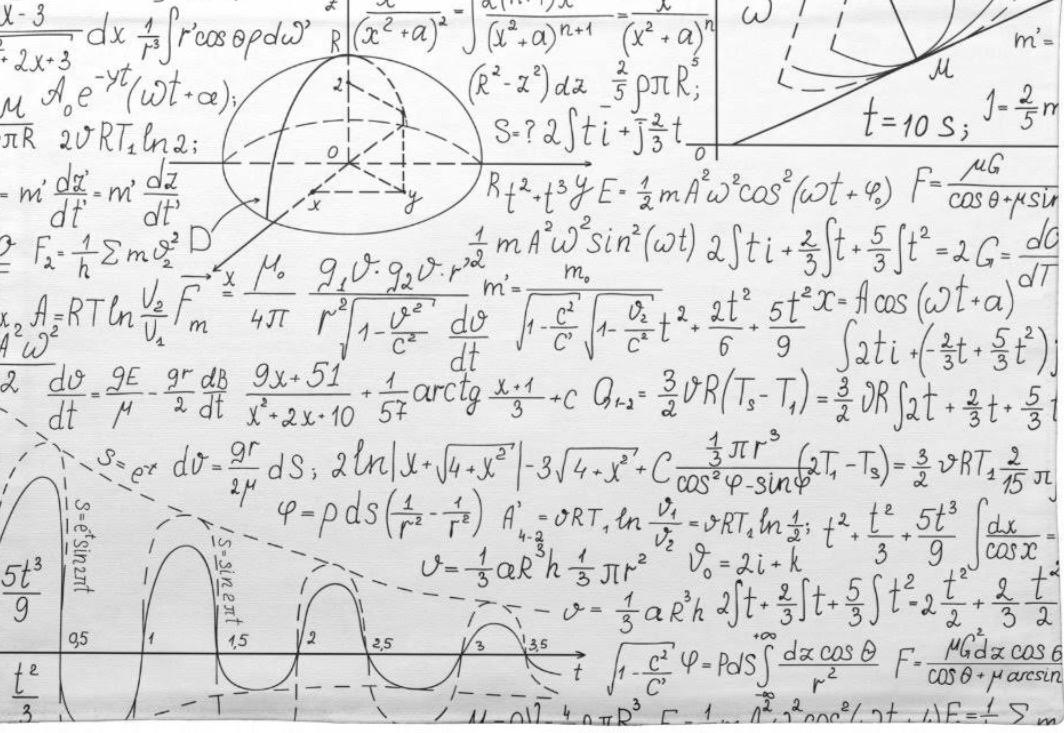 x-3 / +2x+3 dx 1/r³ ∫ r'cos θρdω' R z x/(x²+a)² = ∫ = x/(x²+a)ⁿ ω m'=
A₀e^-γt (ωt+a); 2 (R²-z²)dz 2/5 ρπR⁵; M
M/πR 2ϑRT₁ ln2; S=? 2∫ti + j 2/3 t t=10 S; J= 2/5 m
0 0
= m' dz'/dt' = m' dz/dt' x y R t²+t³ y E= 1/2 mA²ω²cos²(ωt+φ₀) F= μG/cos θ+μsin
F₂= 1/h Σmϑ₂² D 1/2 mA²ω²sin²(ωt) 2∫ti + 2/3∫t + 5/3∫t² = 2G= dG/dT
x₂ A=RTln V₂/V₁ F_m x = μ₀/4π g₁ϑ·g₂ϑ·r'²/r²√1-ϑ²/c² dϑ/dt m'= m₀/√1-c²/c' √1-ϑ₂/c² t²+ 2t²/6 + 5t²/9 x=Acos(ωt+a)
A²ω²/2 ∫2ti+(-2/3t+5/3t²);
dϑ/dt = gE/μ - gr/2 dB/dt 9x+51/x²+2x+10 + 1/57 arctg x+1/3 +C Q₁₋₂= 3/2 ϑR(T₃-T₁)= 3/2 ϑR∫2t+ 2/3t+ 5/3t
S=e^-x dv= gr/2μ dS; 2ln|x+√4+x²|-3√4+x²+C 1/3πr³/cos²φ-sinφ (2T₁-T₃)= 3/2 ϑRT₁ 2/15 π
φ=pds(1/r²-1/r²) A'₄₋₂=ϑRT₁ ln ϑ₁/ϑ₂=ϑRT₁ ln 1/2; t²+ t²/3 + 5t³/9 ∫dx/cosx =
S=e^tsin2πt S=sin2πt
5t³/9 ϑ= 1/3 aR³h 1/3 πr² ϑ₀=2i+k
ϑ= 1/3 aR³h 2∫t+ 2/3∫t+ 5/3∫t²-2 t²/2 + 2/3 t²/2
0,5 1 1,5 2 2,5 3 3,5 t
t²/3 √1-c²/c' φ=PdS∫ +∞ -∞ dz cos θ/r² F= μG²dz cos θ/cos θ+μ arcsin
T T